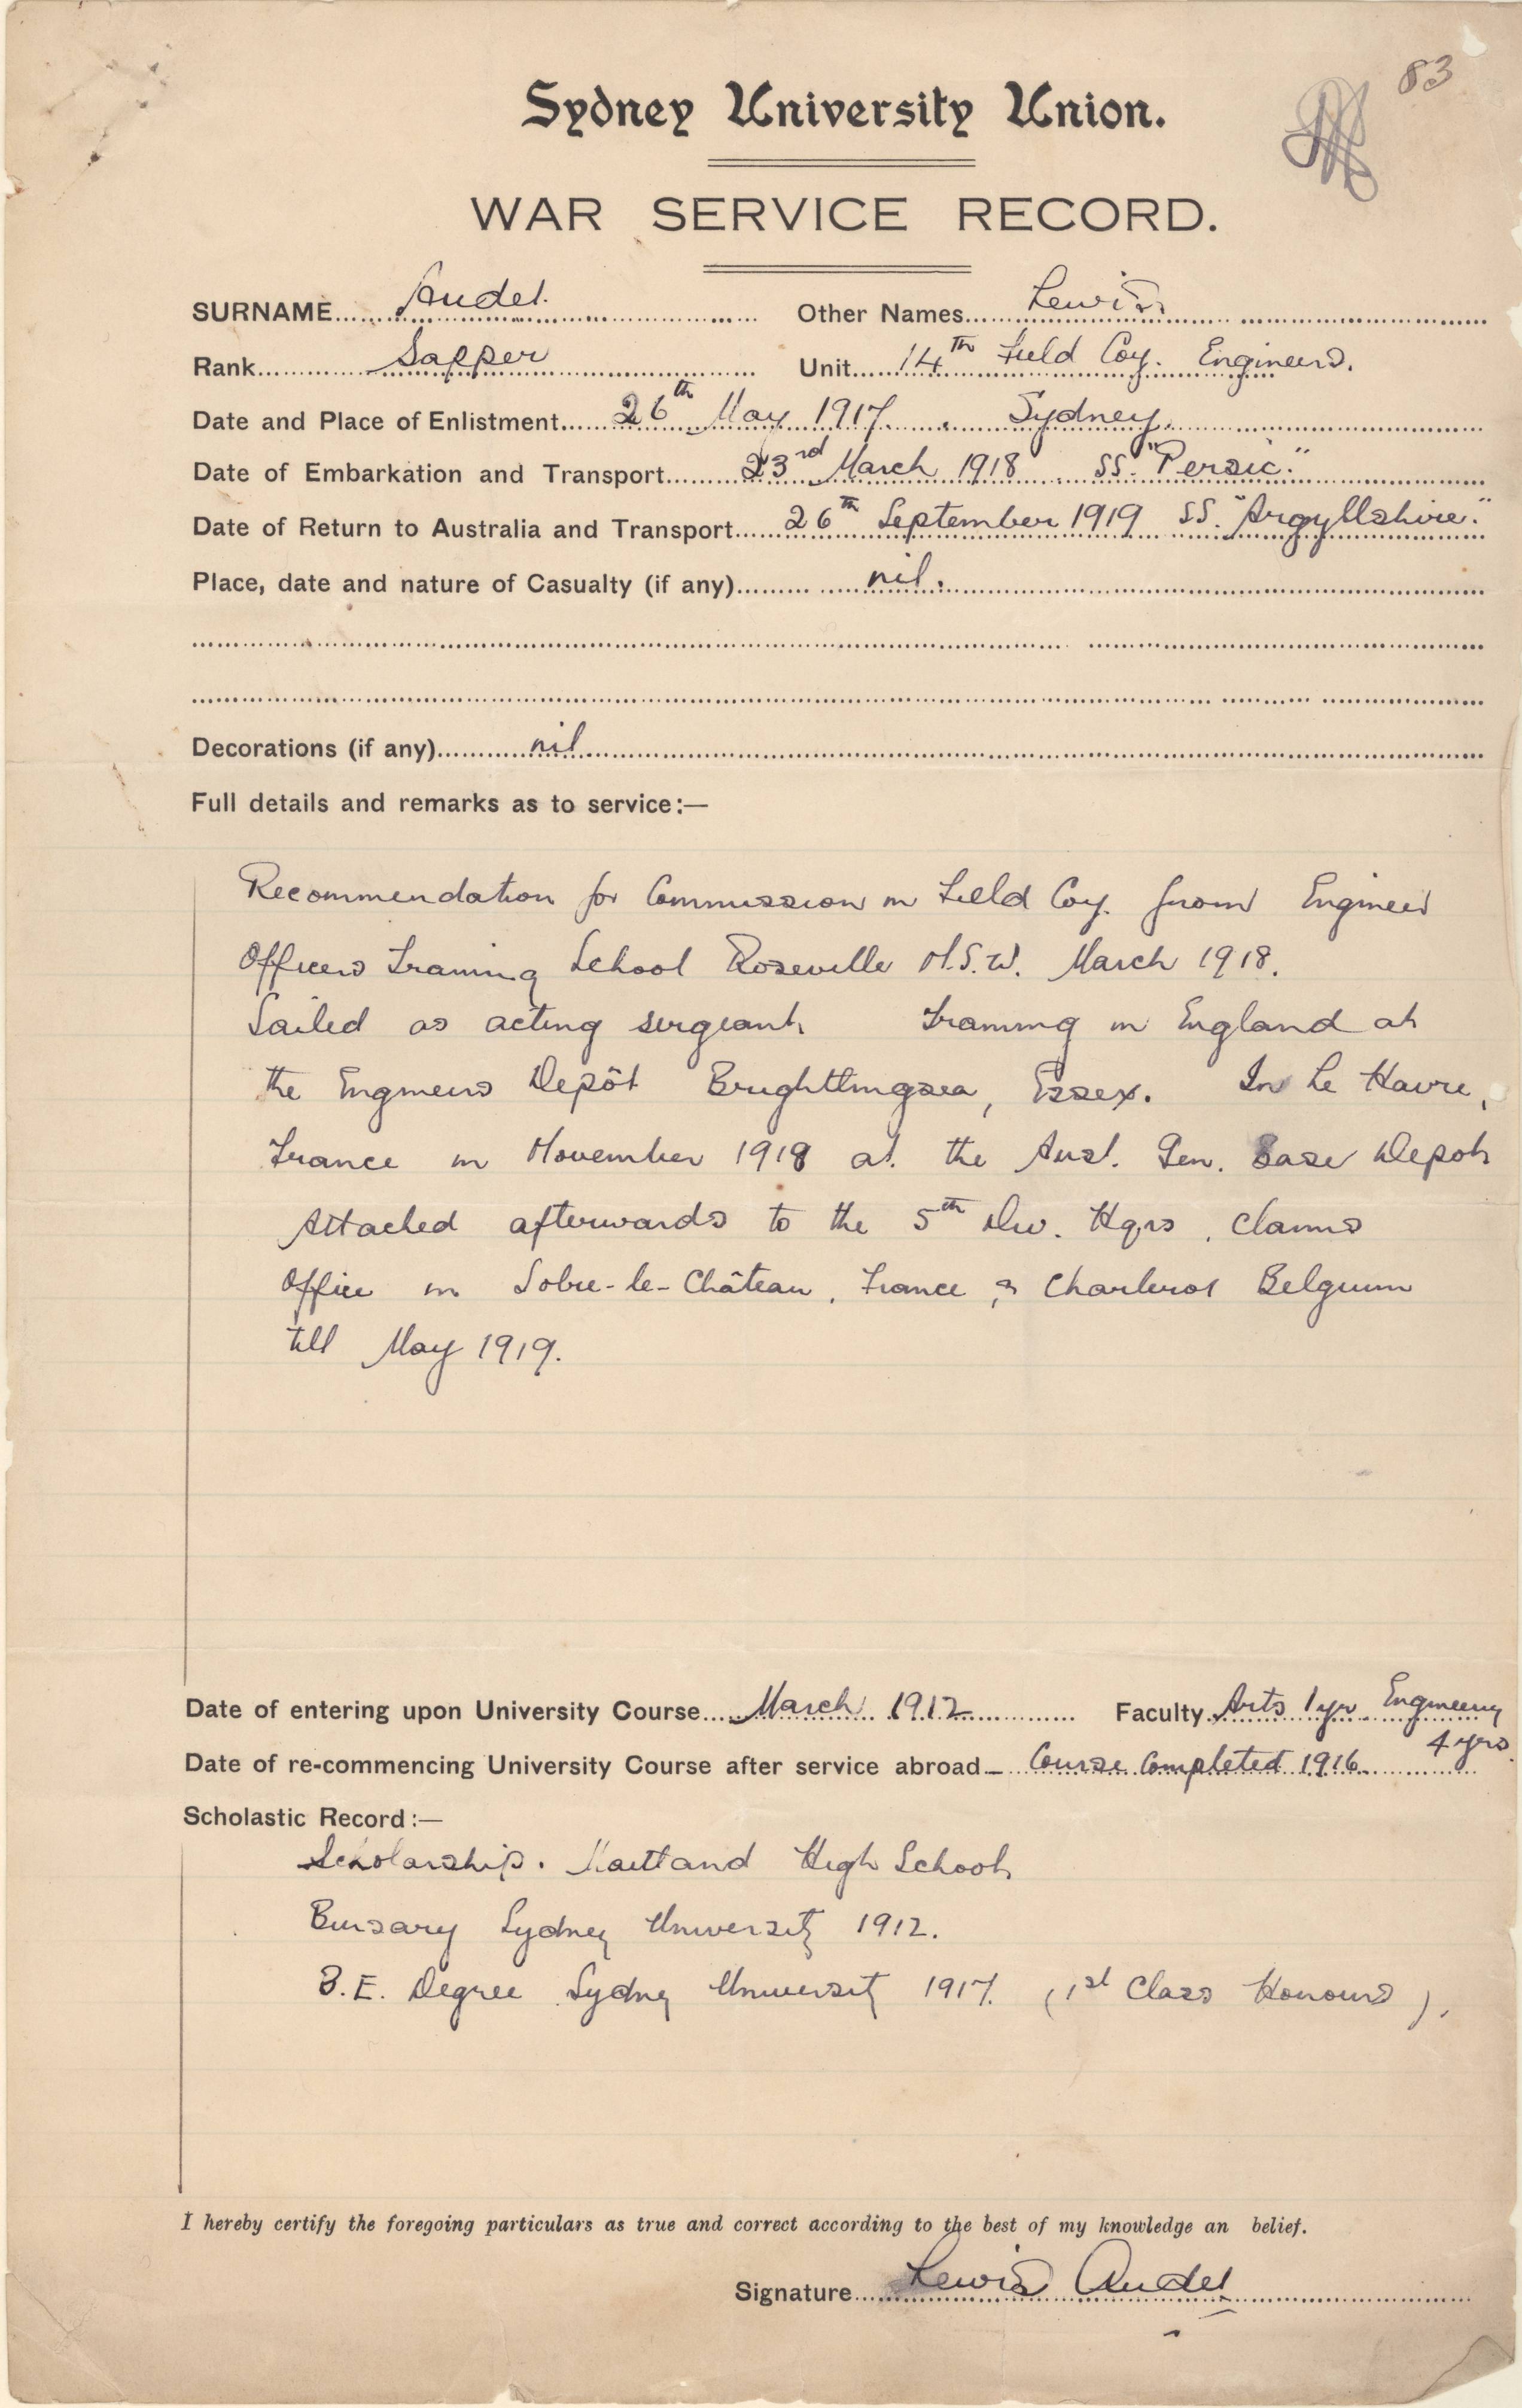 83
Sydney University Union.
WAR SERVICE RECORD.
SURNAME Audet. Other Names Lewis
Rank Sapper Unit 14th Field Coy. Engineers.
Date and Place of Enlistment 26th May 1917. Sydney.
Date of Embarkation and Transport 23rd March 1918 SS. "Persic."
Date of Return to Australia and Transport 26th September 1919 SS. "Argyllshire."
Place, date and nature of Casualty (if any) nil.
Decorations (if any) nil
Full details and remarks as to service:—
Recommendation for Commission in Field Coy. from Engineer
Officers Training School Roseville N.S.W. March 1918.
Sailed as acting sergeant. Training in England at
the Engineers Depôt Brightlingsea, Essex. In Le Havre,
France in November 1918 at the Aust. Gen. Base Depot
Attached afterwards to the 5th Div. Hqrs, Claims
Office in Solre-le-Château, France & Charleroi Belgium
till May 1919.
Date of entering upon University Course March 1912 Faculty Arts 1 yr Engineering
4 yrs.
Date of re-commencing University Course after service abroad Course Completed 1916
Scholastic Record:—
Scholarship. Maitland High School
Bursary Sydney University 1912.
B.E. Degree Sydney University 1917. (1st Class Honours).
I hereby certify the foregoing particulars as true and correct according to the best of my knowledge an belief.
Signature Lewis Audet